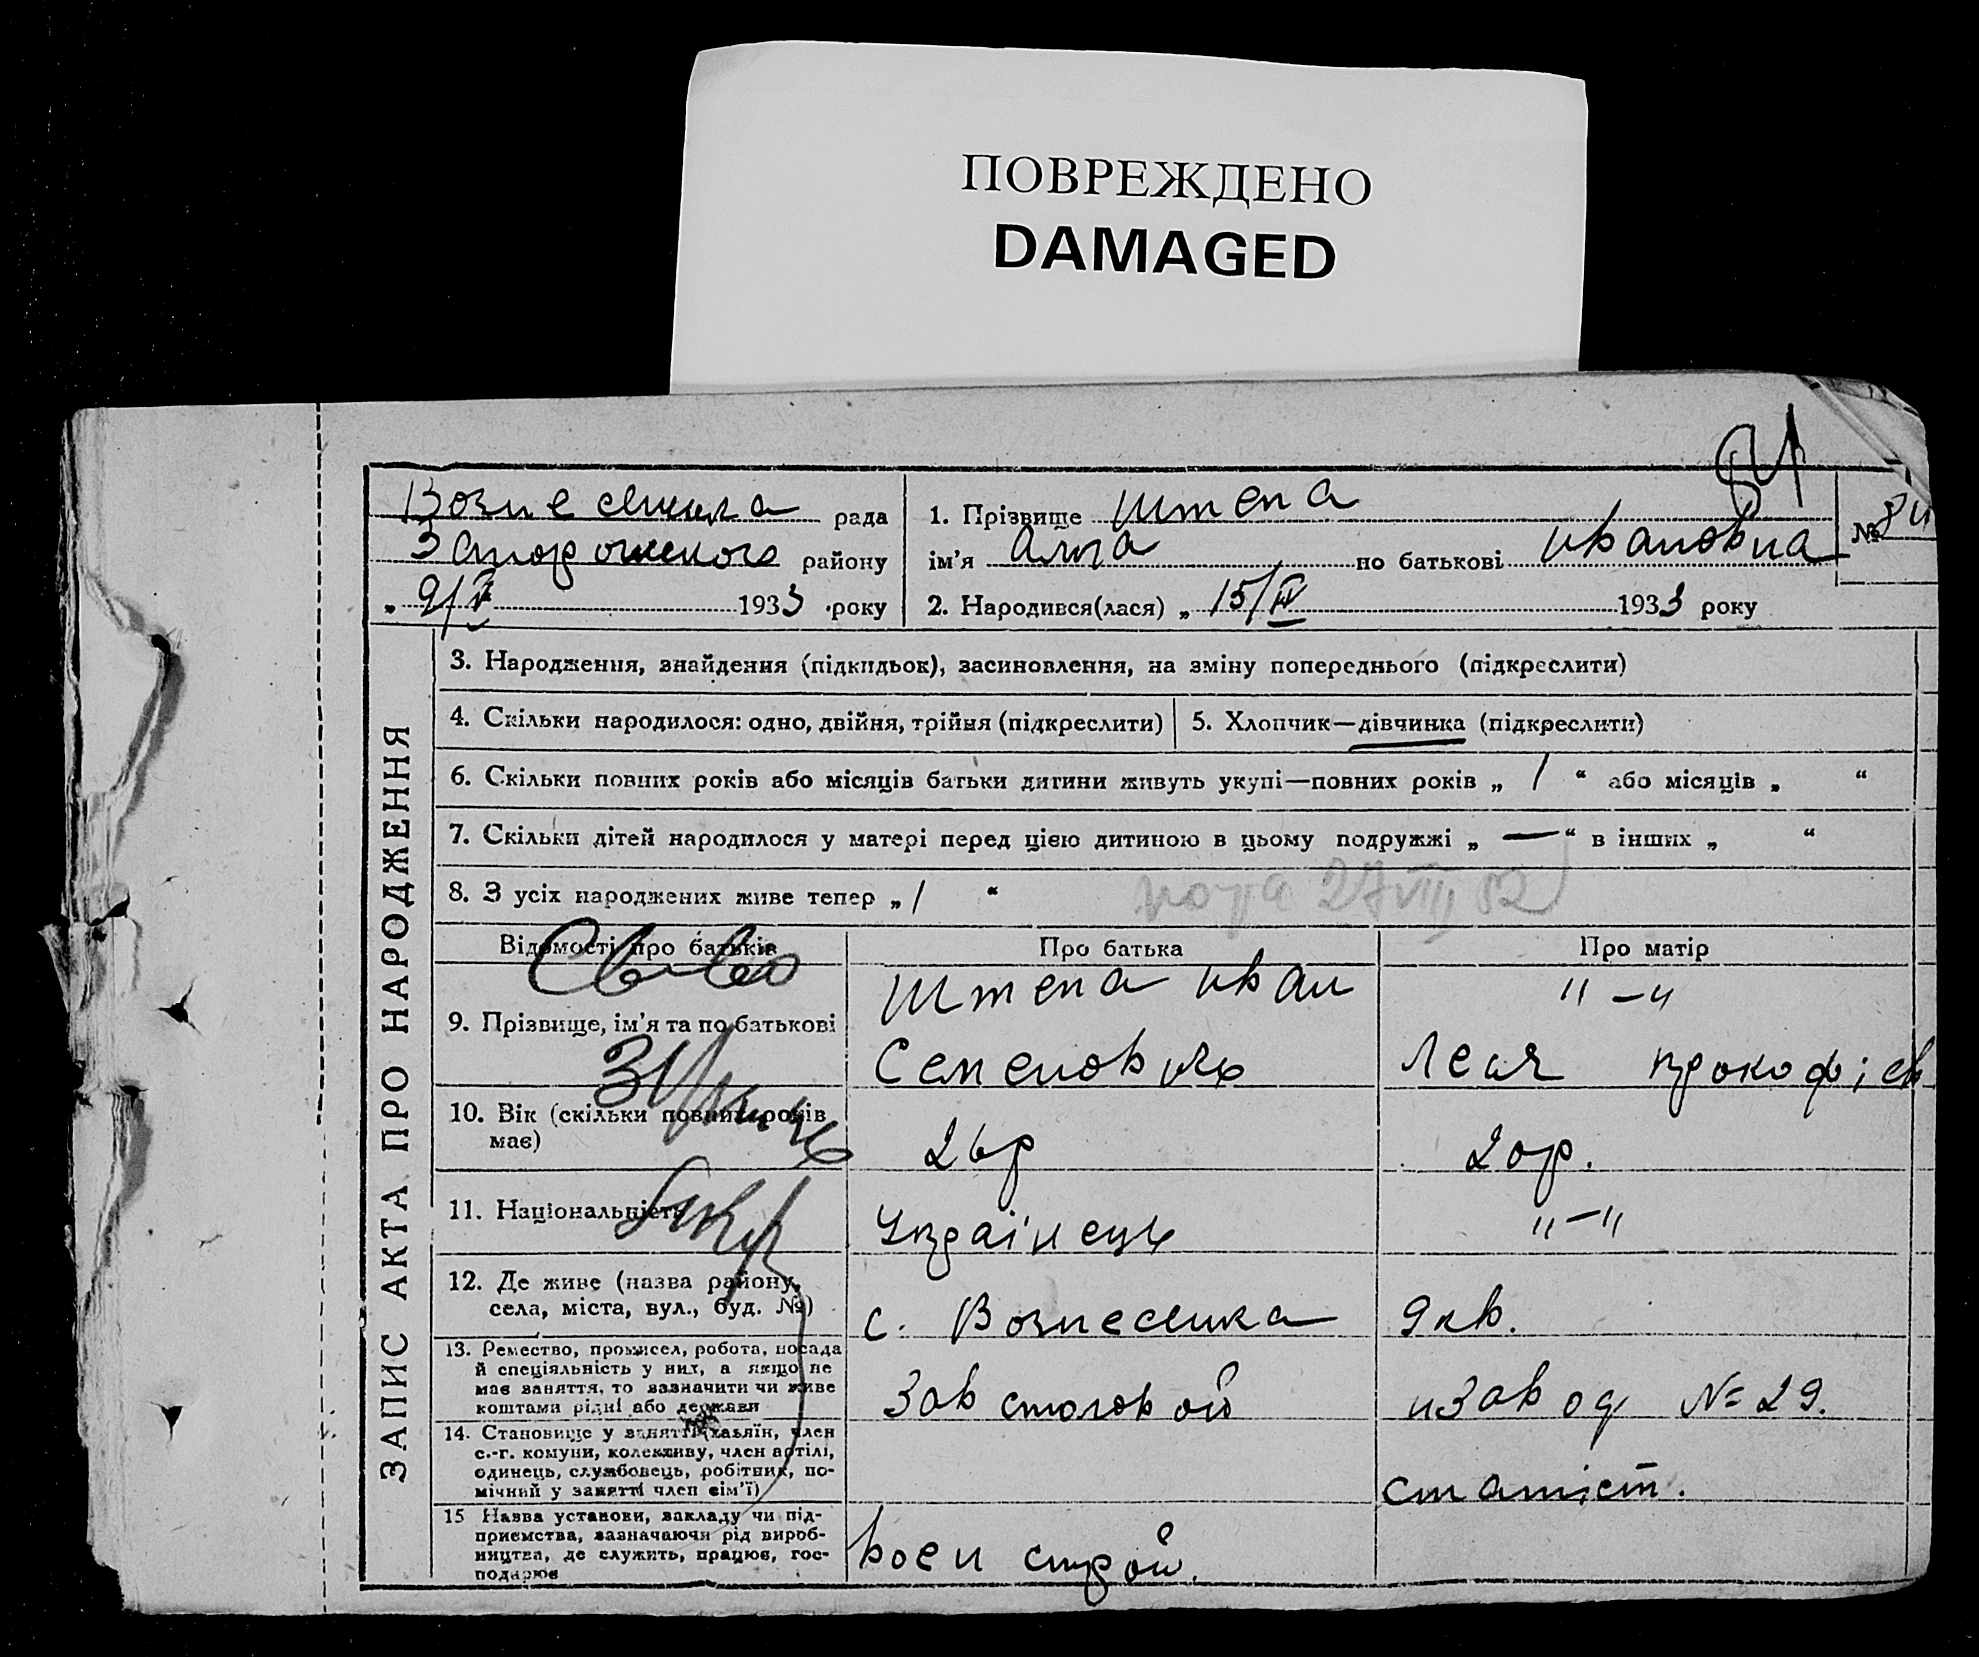 ПОВРЕЖДЕНО
DAMAGED
84
Вознесенська рада
Запорожского району
„ 9/V 1933 року
1. Прізвище Штепа
ім'я Алла по батькові Ивановна
2. Народився(лася) „ 15/IV 1933 року
№ 84
ЗАПИС АКТА ПРО НАРОДЖЕННЯ
3. Народження, знайдення (підкидьок), засиновлення, на зміну попереднього (підкреслити)
4. Скільки народилося: одно, двійня, трійня (підкреслити)
5. Хлопчик—дівчинка (підкреслити)
6. Скільки повних років або місяців батьки дитини живуть укупі—повних років „ 1 “ або місяців „ “
7. Скільки дітей народилося у матері перед цією дитиною в цьому подружжі „ — “ в інших „ “
8. З усіх народжених живе тепер „ 1 “
27 VIII 52
Відомості про батьків
Про батька
Про матір
9. Прізвище, ім'я та по батькові
Штепа Иван
Семенович
" — "
Леся Прокофіев
10. Вік (скільки повних років
має)
26р
20р.
11. Національність
Українець
" — "
12. Де живе (назва району,
села, міста, вул., буд. №)
с. Вознесенка
9 кв.
13. Ремество, промисел, робота, посада
й спеціяльність у них, а якщо не
має заняття, то зазначити чи живе
коштами рідні або держави
Зав столовой
завод № 29.
14. Становище у занятті (хазяїн, член
с.-г. комуни, колективу, член артілі,
одинець, службовець, робітник, по-
мічний у занятті член сім'ї)
статист.
15 Назва установи, закладу чи під-
приємства, зазначаючи рід вироб-
ництва, де служить, працює, гос-
подарює
Воен строй.